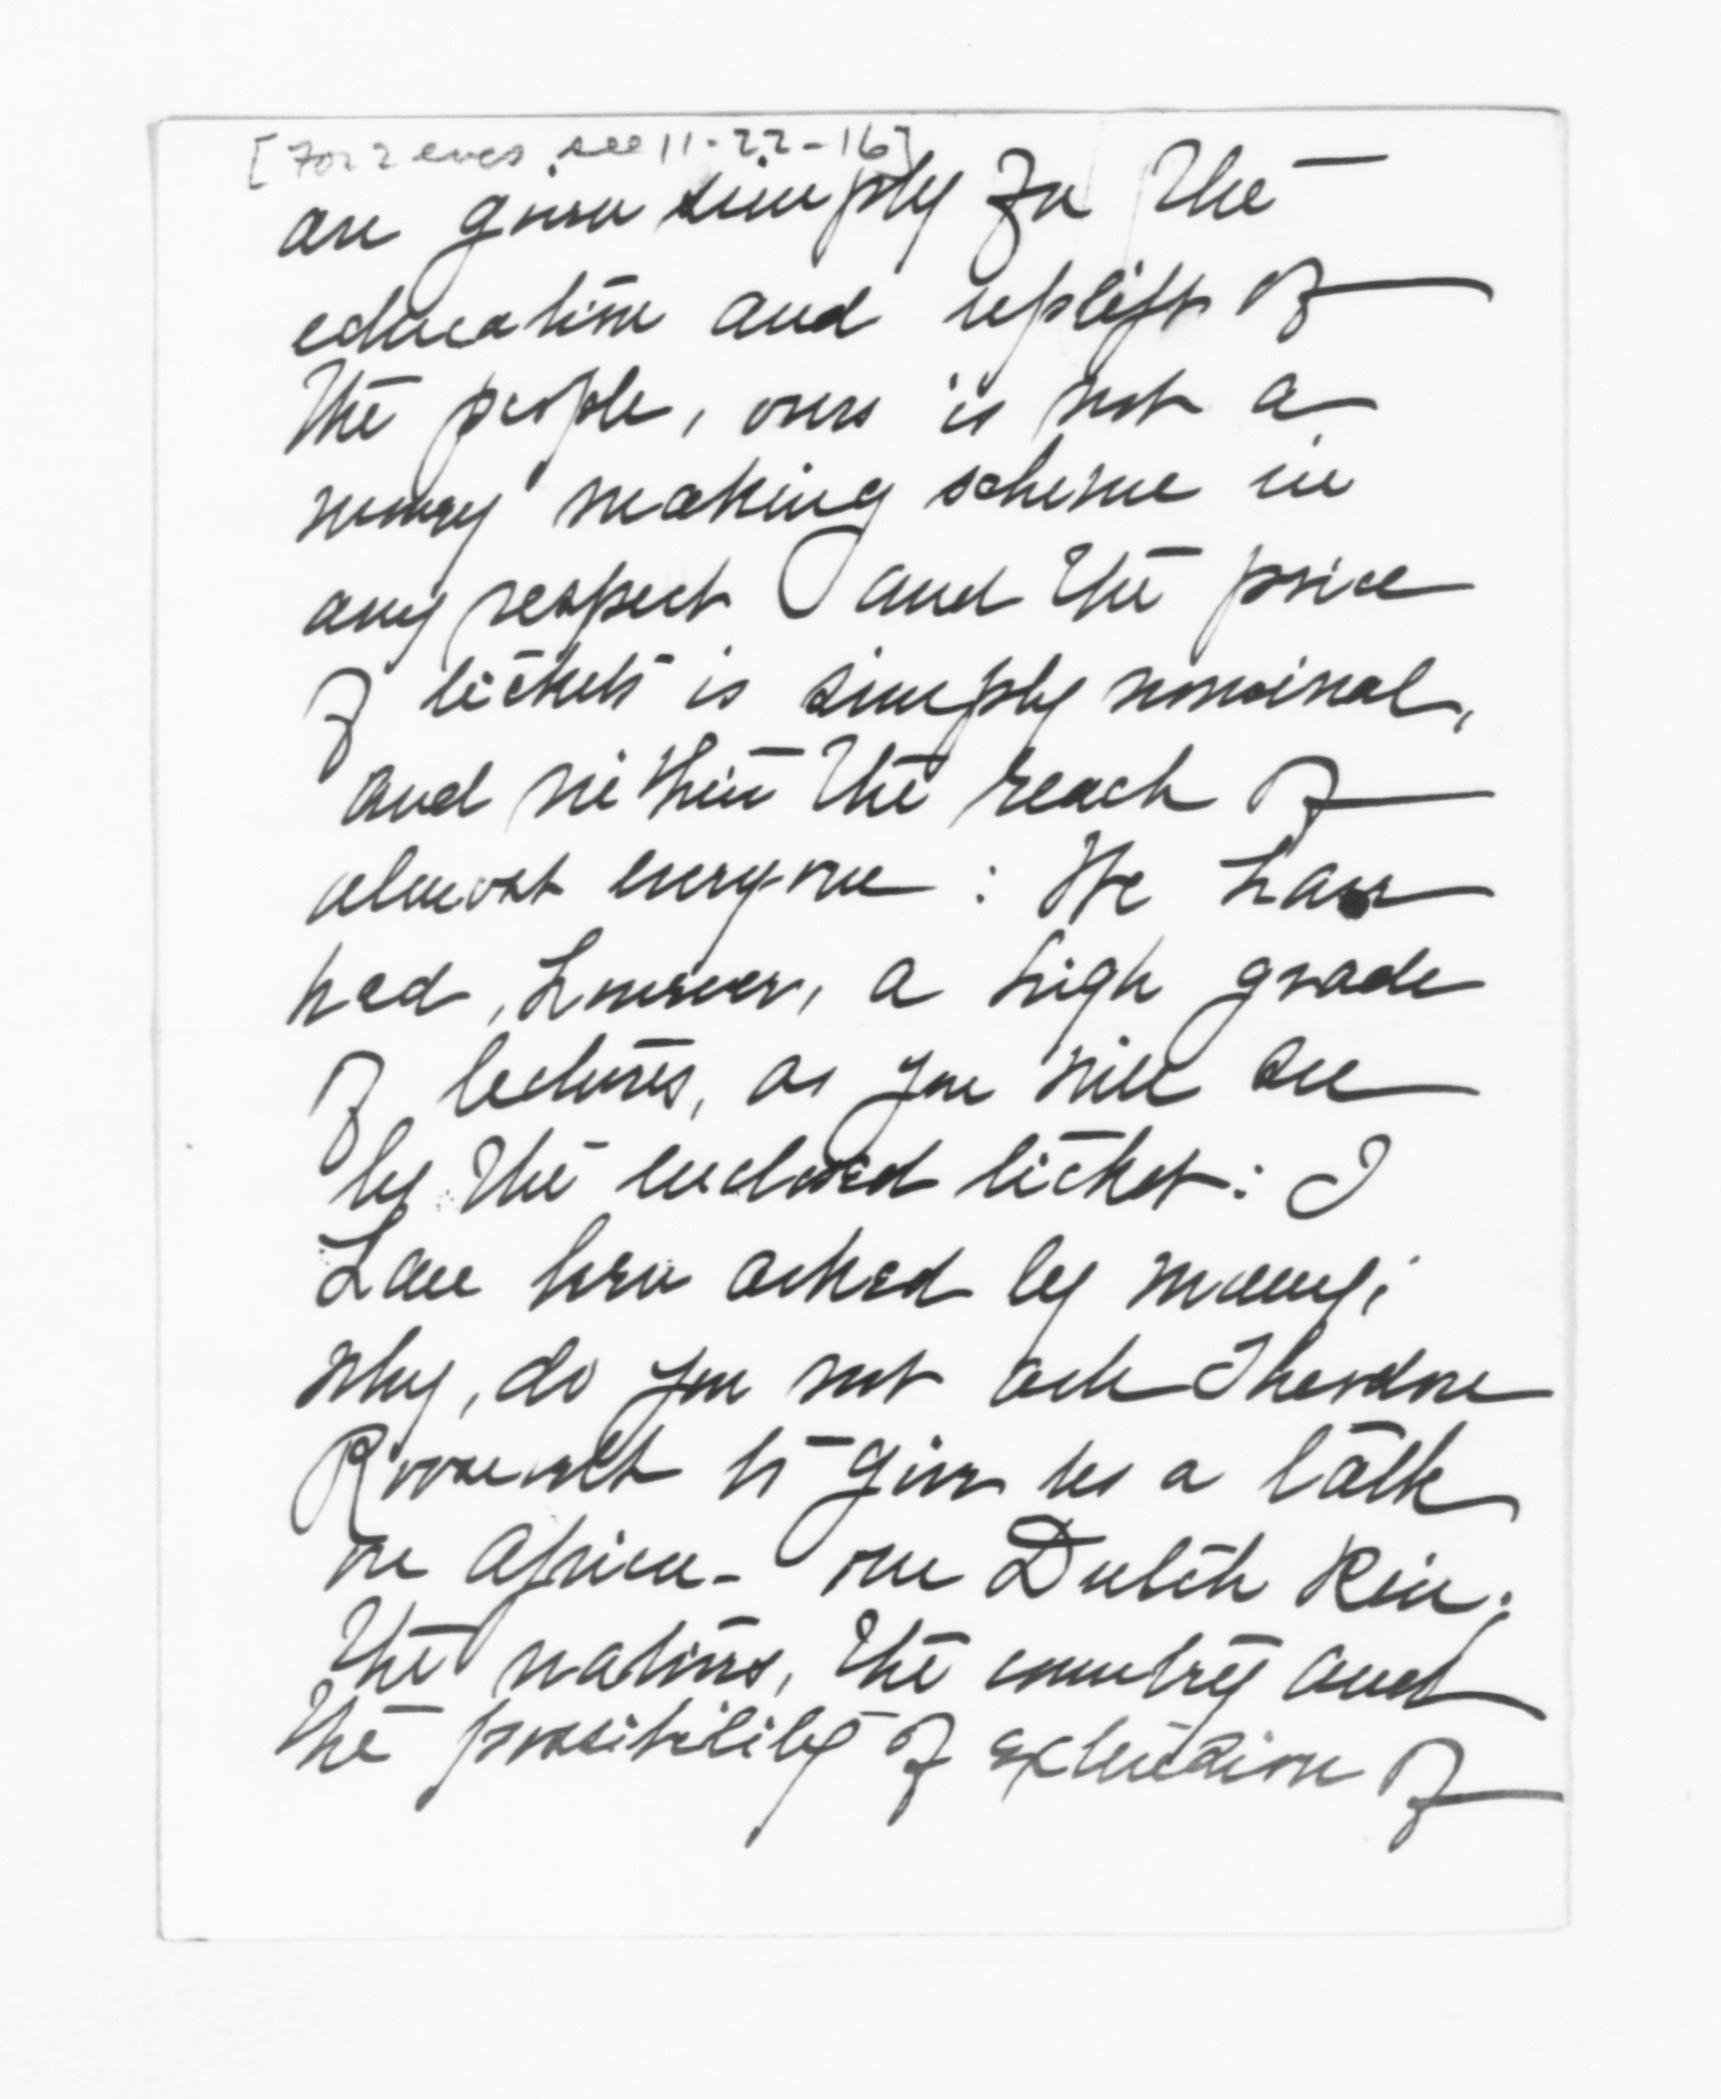 [For 2 encs see 11-22-16]
are given simply for the
education and uplift of
the people, ours is not a
money making scheme in
any respect and the price
of tickets is simply nominal,
and within the reach of
almost everyone: We have
had, however, a high grade
of lectures, as you will see
by the enclosed ticket: I
have been asked by many;
why, do you not ask Theodore
Roosevelt to give us a talk
on Africa - our Dutch Kin;
the natives, the country and
the possibility of extension of